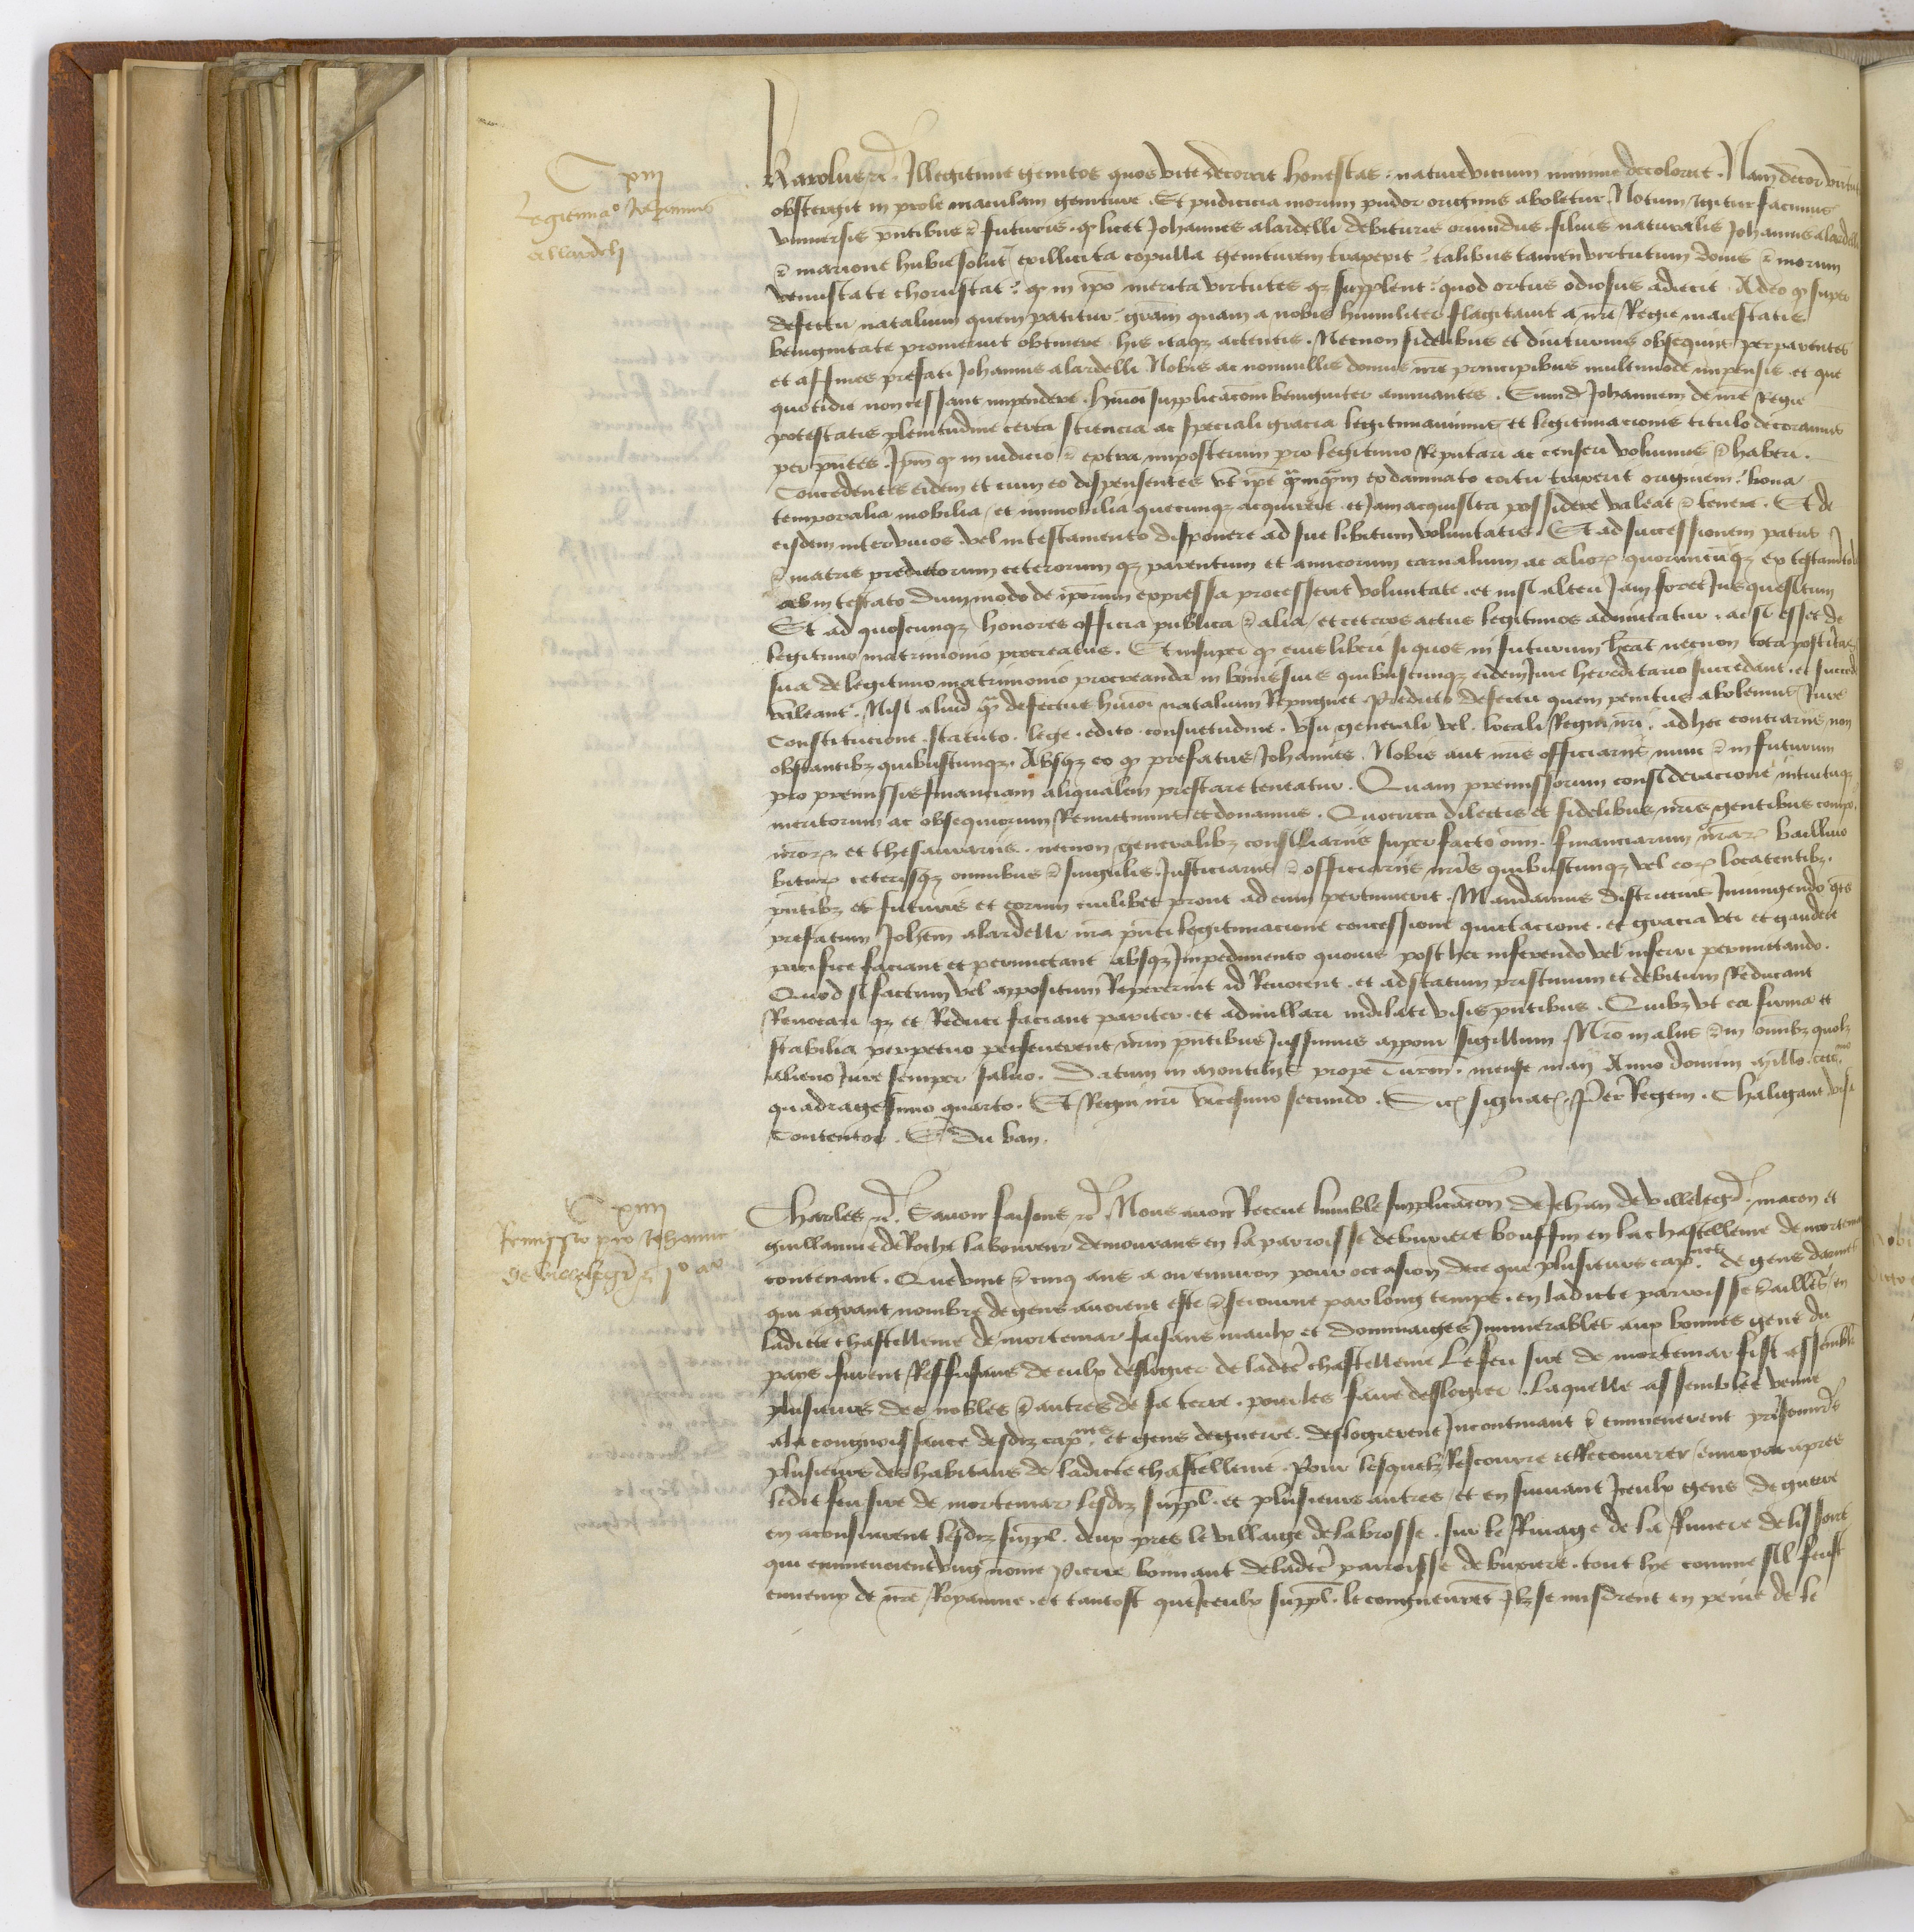 C xiii
Legitimacio Johannis
Allardelli
Karolus etc. Illegitime genitos quos vite decorat honestas. nature vicium minime decolorat. Nam decor virtutis
obstergit in prole maculam geniture. Et pudicicia morum pudor originis aboletur. Notum igitur facimus
universis pntibus et futuris. q licet Johannes alardelli de bituris oriundus filius naturalis Johannis alardelli
et marione hubie solut ex illicita copulla genituram traxerit. talibus tamen virtutum donis et morum
venustate choruscat. q in ipo merita virtutes qz supplent. quod ortus odiosus adiecit. Adeo q super
defectu natalium quem patitur. gram quam a nobis humiliter flagitavit a nra Regie maiestatis
benignitate promeruit obtinere. his itaqz actentis. Necnon fidelibus et diuturnis obsequiis per parentes
et affines prefati Johannis alardelli Nobis ac nonnullis domus nre principibus multimode impensis. et que
quotidie non cessant impendere. hmoi supplicacoi benigniter annuantes. Eundem Johannem de nre Regie
potestatis plenitudine certa sciencia ac speciali gracia legitimavimus et legitimacionis titulo decoramus
per pntes. Ipm q in iudicio et extra imposterum pro legitimo Reputari ac censeri volumus et haberi.
Concedentes eidem et cum eo dispensentes vt ipe qmqm ex damnato coitu traxerit originem. bona
temporalia mobilia et immobilia quecunqz acquirere et jam acquisita possidere valeat et tenere. Et de
eisdem inter vivos vel in testamento disponere ad sue libitum voluntatis. Et ad successionem patris
et matris predictorum ceterorum qz parentum et amicorum carnalium ac alior quoruncuqz ex testamento
ab intestato dummodo de iporum expressa processerit voluntate. et nisi alteri jam foret jus quesitum
Et ad quoscunqz honores officia publica et alia et ceteros actus legitimos admittatur. ac si esset de
legitimo matrimonio procreatus. Et insuper q eius liberi si quos in futurum heat necnon tota posteritas
sua de legitimo matrimonio procreanda in bonis suis quibuscunqz eidem jure hereditario succedant. et succedere
valeant. Nisi aliud q defectus hmoi natalium Repugnet. Predicto defectu quem penitus abolemus jure
Constitucione. statuto. lege. edito. consuetudine. vsu generali vel locali Regni nri. ad hec contrariis non
obstantibz quibuscunqz. Absqz eo q prefatus Johannes. Nobis aut nris officiariis nunc et in futurum
pro premissis financiam aliqualem prestare teneatur. Quam premissorum consideracione intuituqz
meritorum ac obsequiorum Remittimus et donamus. Quocirca dilectis et fidelibus nris gentibus compo.
nror. et thesaurariis. necnon generalibz consiliariis super facto oim. financiarum nrar baillivo
bitur ceterisqz omnibus et singulis Justiciariis et officiariis nris quibuscunqz vel eor locatentibz.
pntibz et futuris et eorum cuilibet prout ad eum pertinuerit. Mandamus districtius Iniungendo qts
prefatum Johem alardelli nra pnti legitimacione concessione quictacione. et gracia vti et gaudere
pacifice faciant et permictant absqz Impedimento quovis post hec inferendo vel inferri permittando.
Quod si factum vel appositum Repererint id Revocent. et ad statum pristinum et debitum Reducant
Revocari qz et Reduci faciant pariter. et adnullari indilate visis pntibus. Quibz vt ea firma et
stabilia perpetuo perseverent nrm pntibus Jussimus apponi sigillum. Nro in aliis et in omibz quolz
alieno jure semper salvo. Datum in montiliis prope Turon. mense maii Anno domini millo. cccc.mo
quadragesimo quarto. Et Regni nri vicesimo secundo. Sic signat. Per Regem. Chaligaut visa
Contentor. E Du ban.
C xiiii
Remissio pro Johanne
de villelegr et io alio
Charles etc. Savoir faisons etc. Nous avoir Receue humble supplicacon de Jehan de villelegr. macon et
guillaume de Roche laboureur demourans en la parroisse de buxiere bouffin en la chastellenie de mortemar
contenant. Que vint et cinq ans a ou environ pour occasion de ce que plusieurs cappnes de gens darmes
qui a grant nombre de gens avoient este et seiourne par long temps. en ladicte parroisse et ailleurs en
ladicte chastellenie de mortemar faisans maulx et dommaiges Innumerables aux bonnes gens du
pais. furent Reffusans de eulx deslogier de ladte chastellenie Le feu sire de mortemar fist assembler
plusieurs des nobles et autres de sa terre. pour les faire deslogier. laquelle assemblee venue
a la congnoissance desdiz cappnes et gens de guerre. deslogierent Incontinant et emmenerent prisonniers
plusieurs des habitans de ladicte chastellenie. Pour lesquelz Rescourre et Recouvrer envoya apres
ledit feu sire de mortemar lesdiz suppl. et plusieurs autres et en suivant Iceulx gens de guerre
en aconsuirent lesdiz suppl. deux pres le villaige de la brosse. sur le Rivage de la Riviere de lissort
qui emmenoient vng nome Pierre bonnant de ladte parroisse de buxiere. tout lye comme sil feust
ennemy de nre Royaume. et tantost que Iceulx suppl. le congneurent Ilz se misdrent en peine de le